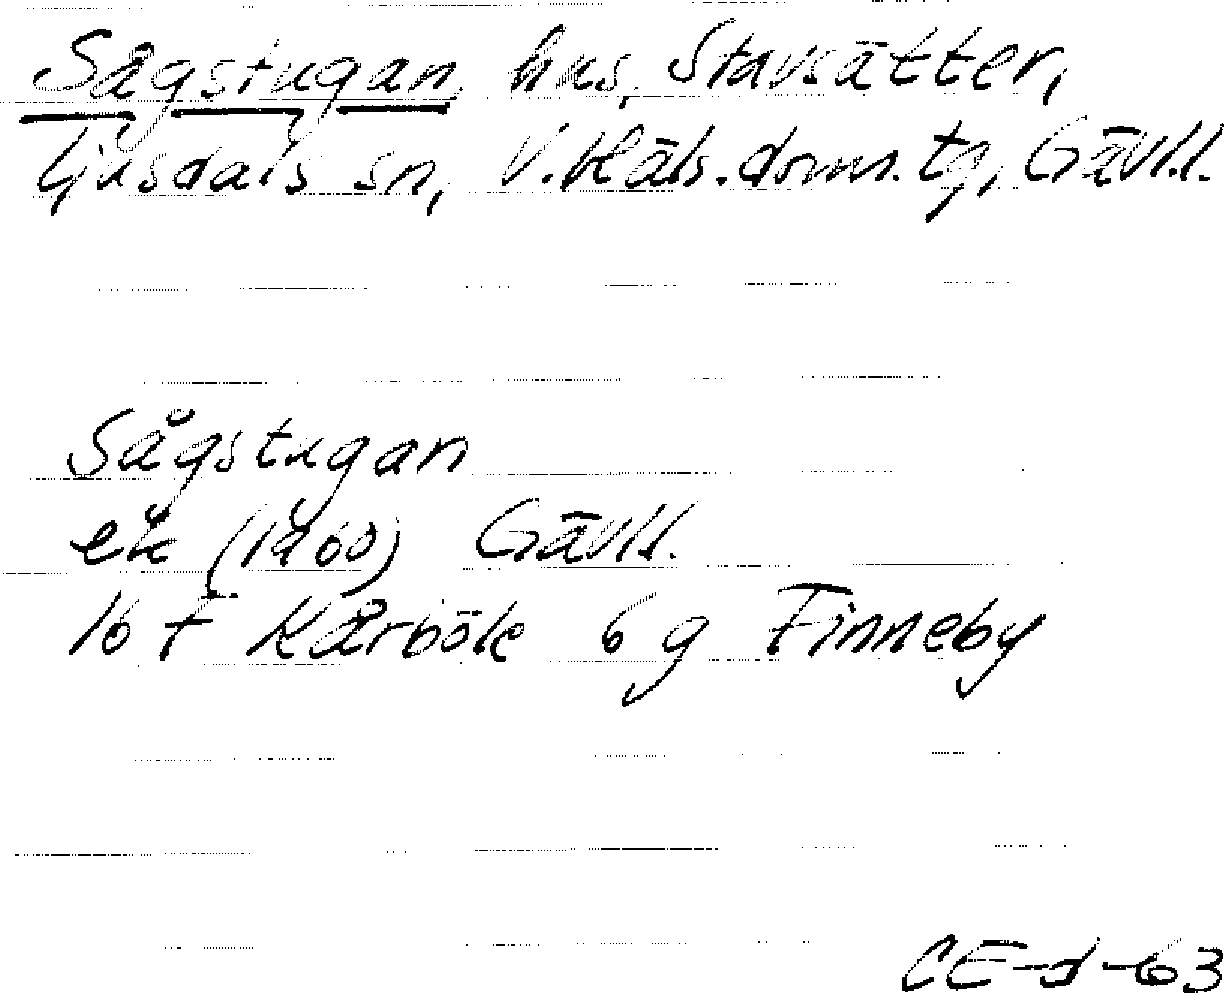 Sågstugan, hus, Stavsätter,
Ljusdals sn, V.Häls.doms.tg, Gävl.l.
Sågstugan
ek (1960) Gävl.l.
16 F Kårböle 6 g Finneby
CE-d-63